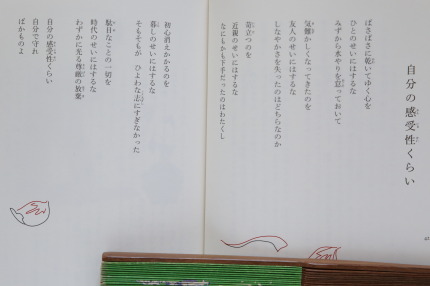 自分の感受性くらい
ぱさぱさに乾いてゆく心を
ひとのせいにはするな
みずから水やりを怠っておいて
気難かしくなってきたのを
友人のせいにはするな
しなやかさを失ったのはどちらなのか
苛立つのを
近親のせいにはするな
なにもかも下手だったのはわたくし
初心消えかかるのを
暮しのせいにはするな
そもそもが ひよわな志にすぎなかった
駄目なことの一切を
時代のせいにはするな
わずかに光る尊厳の放棄
自分の感受性くらい
自分で守れ
ばかものよ